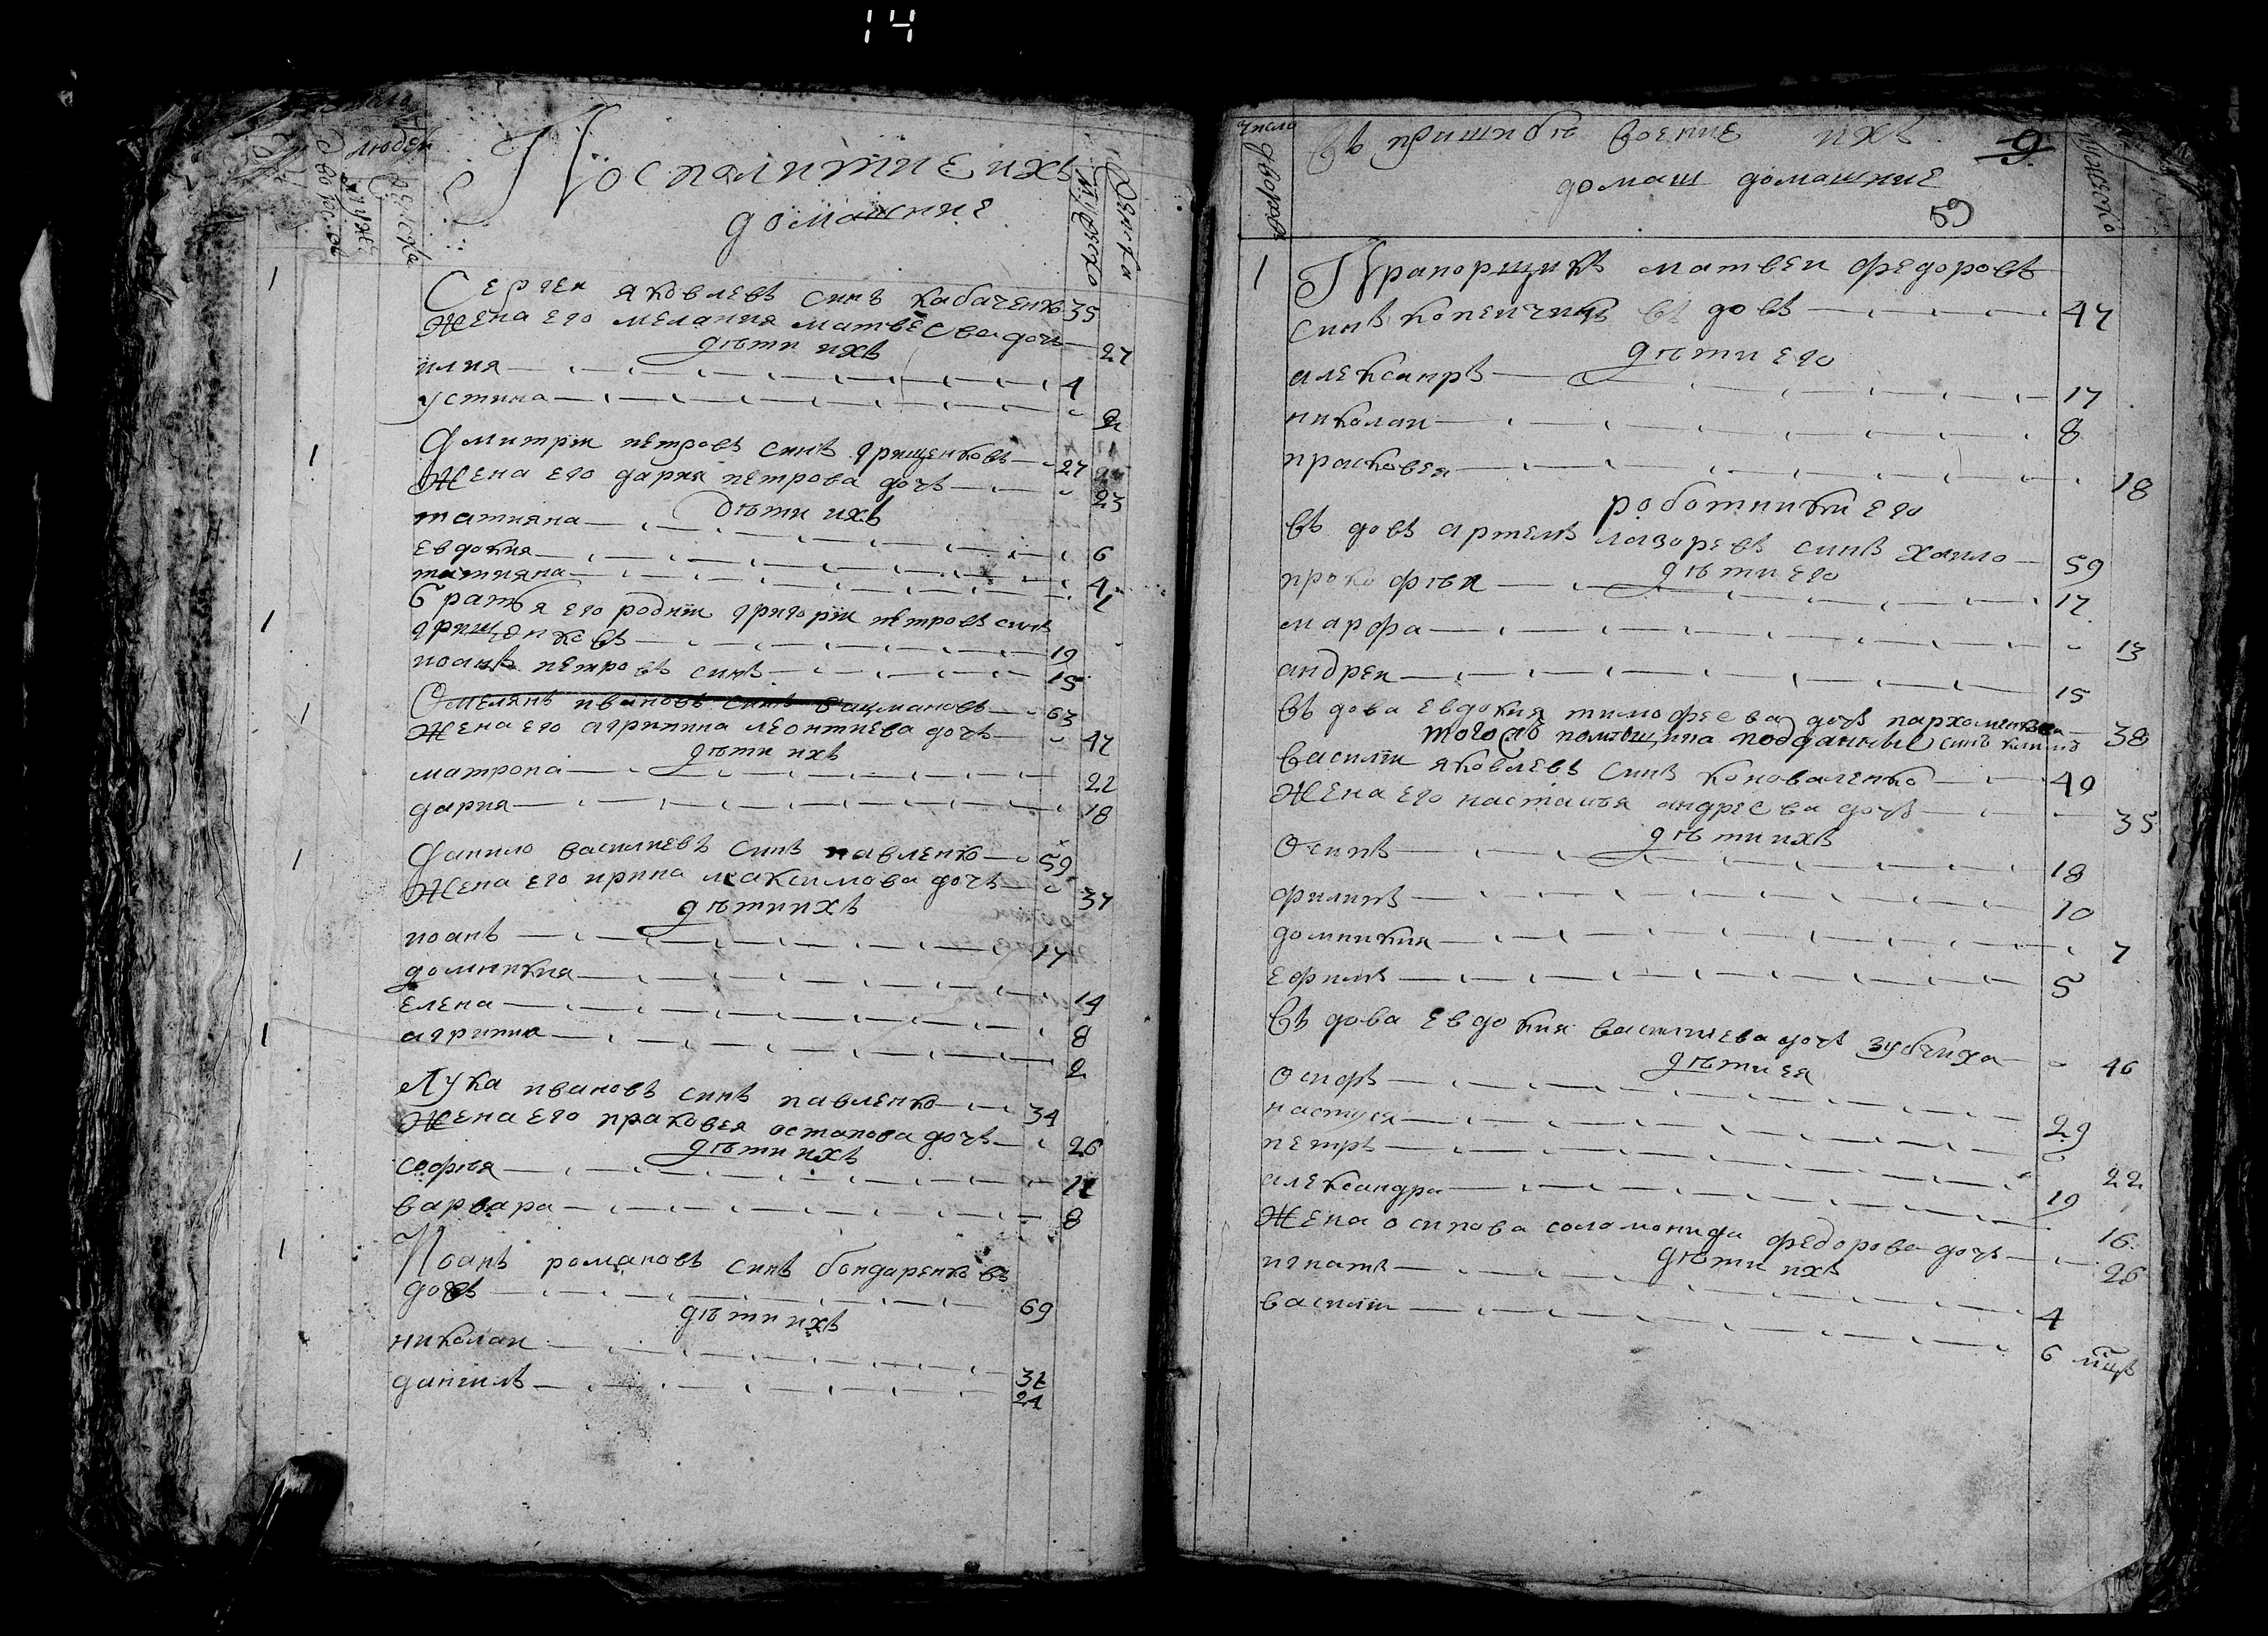 14
людей
дворов
муж
женска
Посполитие ихъ
домашние
мужеско
женска
1 Сергеи яковлевъ синъ кабаченко 35
Жена его мелания матвеева дочь 27
дѣти ихъ
илия 4
устина 2
1 Дмитрїи петровъ синъ грищенковъ 27
Жена его дария петрова дочъ 23
дѣти ихъ
татияна 6
евдокия 4
татияна 1
1 братья его роднїи григорїи петровъ синъ
грищенковъ 19
иоанъ петровъ синъ 15
1 Омелянъ ивановъ синъ вацмановъ 63
Жена его агрипина леонтиева дочъ 47
дѣти ихъ
матрона 22
дария 18
1 Данило василиевъ синъ павленко 59
Жена его ирина максимова дочъ 37
дѣти ихъ
иоанъ 17
домникия 14
елена 8
агрипина 2
1 Лука ивановъ синъ павленко 34
Жена его праковея остапова дочъ 26
дѣти ихъ
софѣя 12
варвара 8
1 Иоанъ романовъ синъ бондаренковъ
довъ 69
дѣти ихъ
николаи 32
данїилъ 24
число
дворовъ
ихъ
9
домаш домашние
59
мужеско
1 Прапорщикъ матвеи федоровъ
синъ копеичикъ въ довъ 47
дѣти его
александръ 17
николаи 8
прасковея 18
роботники его
въ довъ артемъ лазоревъ синъ хаило 59
дѣти его
прокофѣи 17
марфа 13
андреи 15
въ дова евдокия тимофеева дочъ пархоменкова 38
того помѣщика подданные
василїи яковлевъ синъ коноваленко 49
Жена его настасѣя андреева дочъ 35
дѣти ихъ
Осипъ 18
филипъ 10
домникия 7
ефимъ 5
въ дова евдокия василиева дочъ зубчиха 46
дѣти ея
Осифъ 29
настуся 22
петръ 19
александра 16
Жена осипова соломонида федорова дочъ 26
дѣти ихъ
игнатъ 4
василїи 6 мцъ